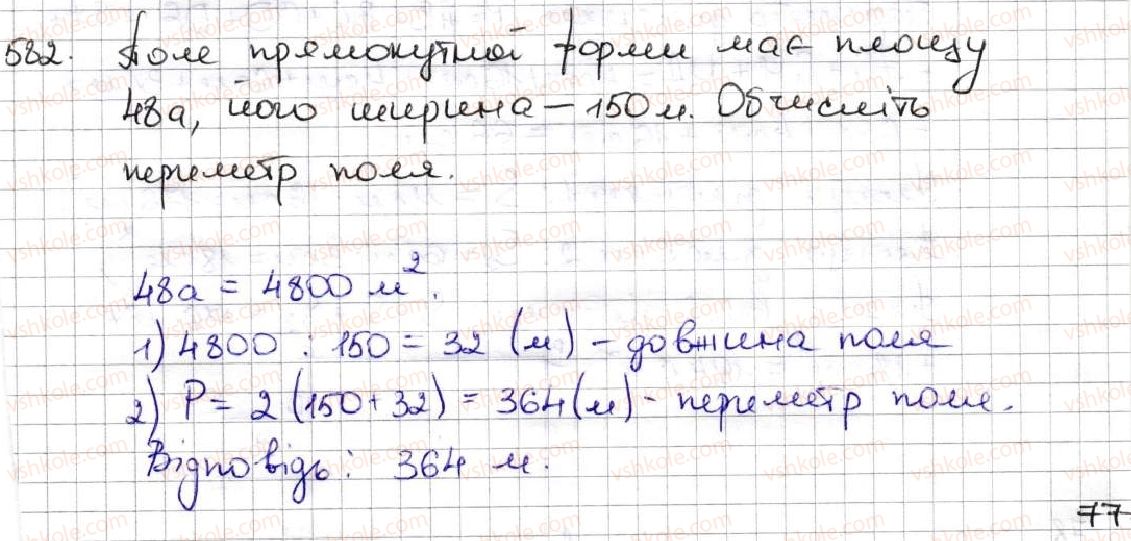 582. Поле прямокутної форми має площу
48а, його ширина – 150 м. Обчисліть
периметр поля.
48а = 4800 м².
1) 4800 : 150 = 32 (м) – довжина поля
2) P = 2 (150 + 32) = 364 (м) - периметр поля.
Відповідь: 364 м.
77